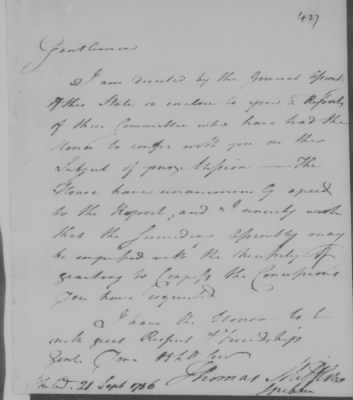 427
Gentlemen
I am directed by the General Assembly
of this State to enclose to you a Report
of their Committee who have had the
Honor to confer with you on the
Subject of your Mission — The
House have unanimously agreed
to the Report, and I sincerely wish
that the succeeding Assembly may
be impressed with the necessity of
granting to Congress the Concessions
you have requested
I have the Honor to be
with great Respect
Philad. 21 Sept 1786 Thomas Mifflin
Speaker